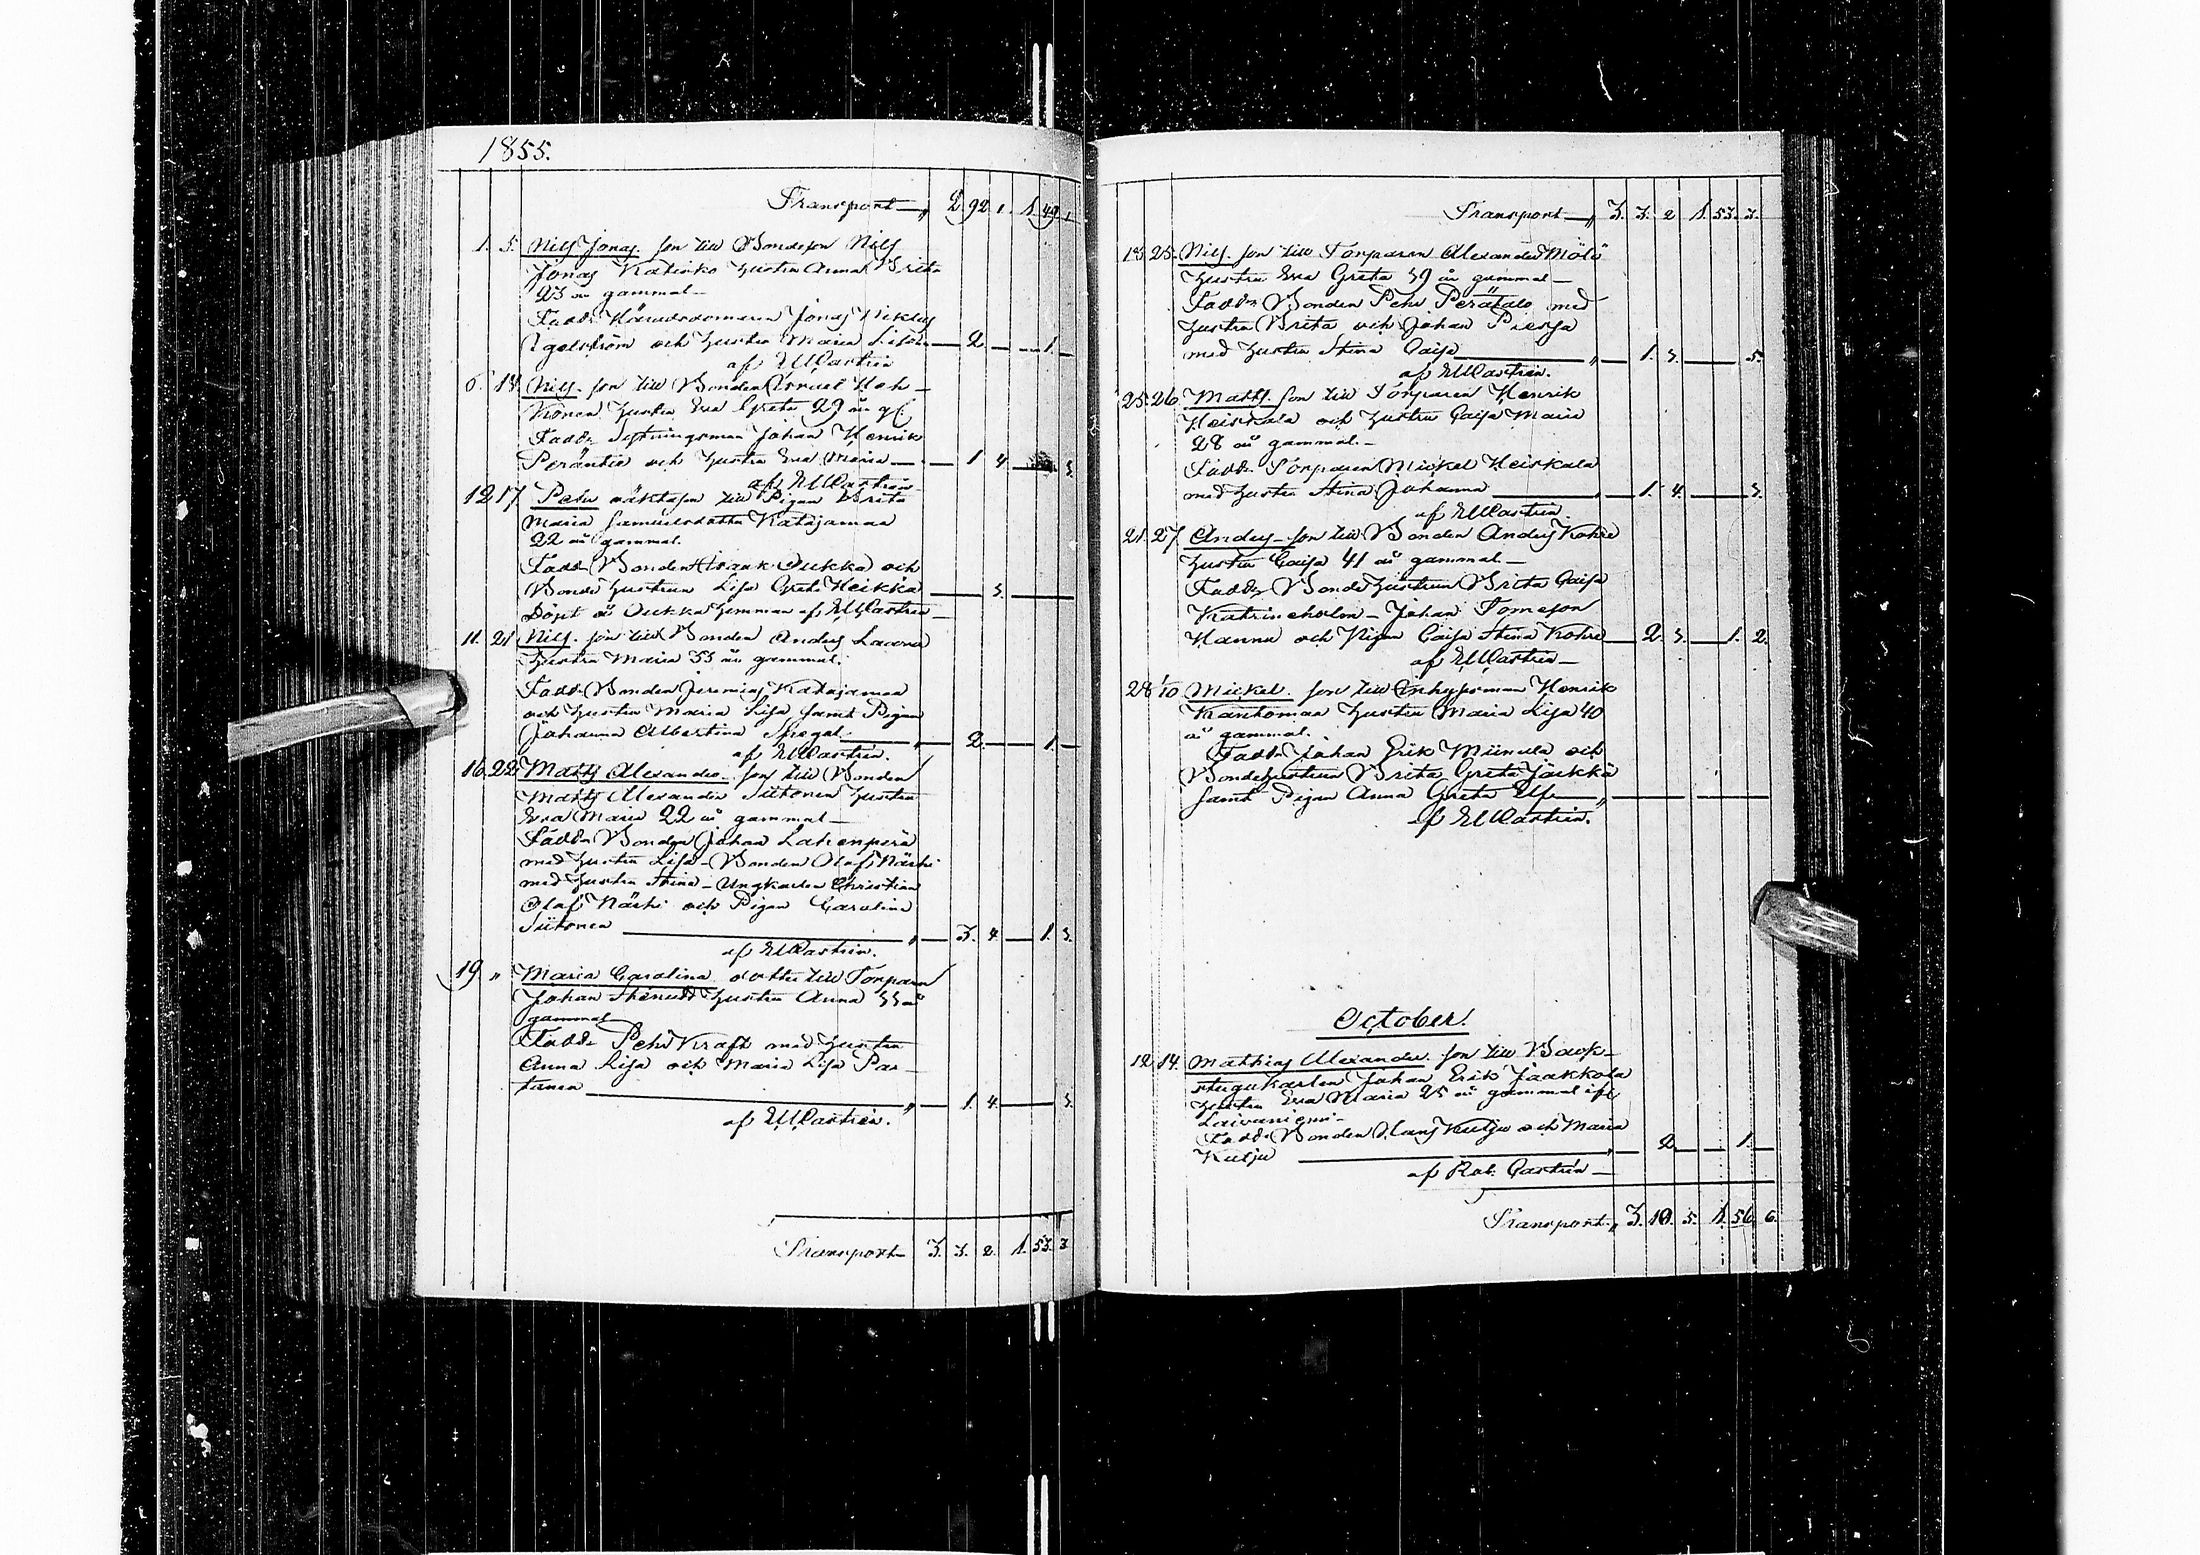 1855.
Transport 2. 92. 1. 1. 49. 1.
1. 5. Nils Jonas. son till Bondeson Nils
Jonas Katisko hustru Anna Brita
23 år gammal
Fadd: Häradsdomaren Jonas Niklas
och hustru Maria Lisa 2. 1.
af EMCastrén
6. 14. Nils. son till Bonden Israel Hoh-
konen hustru Eva Greta 29 år gl.
Fadd: Sexman Johan Henrik
Peräntie och hustru Eva Maria 1. 4. 3.
af EMCastrén
12 17. Pehr oäkta son till Pigan Brita
Maria Samuelsdotter Katajamaa
22 år gammal.
Fadd: Bonden Isaak Oukka och
Bonde hustrun Lisa Greta Heikka 3.
Döpt å Oukka hemman af EMCastrén
11. 21 Nils. son till Bonden Anders Laara
hustru Maria 33 år gammal.
Fadd: Bonden Jeremias Katajamaa
och hustru Maria Lisa samt Pigan
Johanna Albertina 2. 1.
af EMCastrén.
16. 22. Matts Alexander. son till Bonden
Matts Alexander Siitonen hustru
Eva Maria 22 år gammal
Fadd: Bonden Johan Lahenperä
med hustru Lisa - Bonden Olof Närhi
med hustru Stina - Ungkarlen Christian
Olof Närhi och Pigan Carolina
Siitonen 3. 4. 1. 3.
af EMCastrén.
19. " Maria Carolina dotter till Torparn
Johan hustru Anna 33 år
gammal
Fadd: Pehr Kraft med hustru
Anna Lisa och Maria Lisa Par-
tanen 1. 4. 3.
af EMCastrén.
Transport 3. 3. 2. 1. 53. 3
Transport 3. 3. 2 1. 53. 3.
18. 25. Nils. son till Torparen Alexander Mölö
hustru Eva Greta 39 år gammal
Fadd: Bonden Pehr Perätalo med
hustru Brita och Johan Piesja
med hustru Stina Caisa 1. 3. 5.
af EMCastrén.
25. 26. Matts. son till Torparen Henrik
Heiskala och hustru Caisa Maria
28 år gammal.
Fadd: Torparen Mickel Heiskala
med hustru Stina Johanna 1. 4. 3.
af EMCastrén.
21. 27. Anders - son till Bonden Anders Kohre
hustru Caisa 41 år gammal.
Fadd: Bonde hustrun Brita Caisa
Katrineholm - Johan Tomeson
Hannu och Pigan Caisa Stina Kohre 2. 3. 1. 2.
af EMCastrén
28 1/10 Mickel. son till Inhysesman Henrik
Kantomaa hustru Maria Lisa 40
år gammal.
Fadd: Johan Erik Miinula och
Bondehustrun Brita Greta
samt Pigan Anna Greta Ulf
af EMCastrén.
October.
12. 14. Mathias Alexander. son till Back-
stugukarlen Johan Erik Jaakkola
hustru Eva Maria 25 år gammal ifr.
Laivaniemi.
Fadd: Bonden Hans Kutju och Maria
Kutju 2. 1.
af Rob. Castrén
Transport 3. 10. 5. 1. 56. 6.